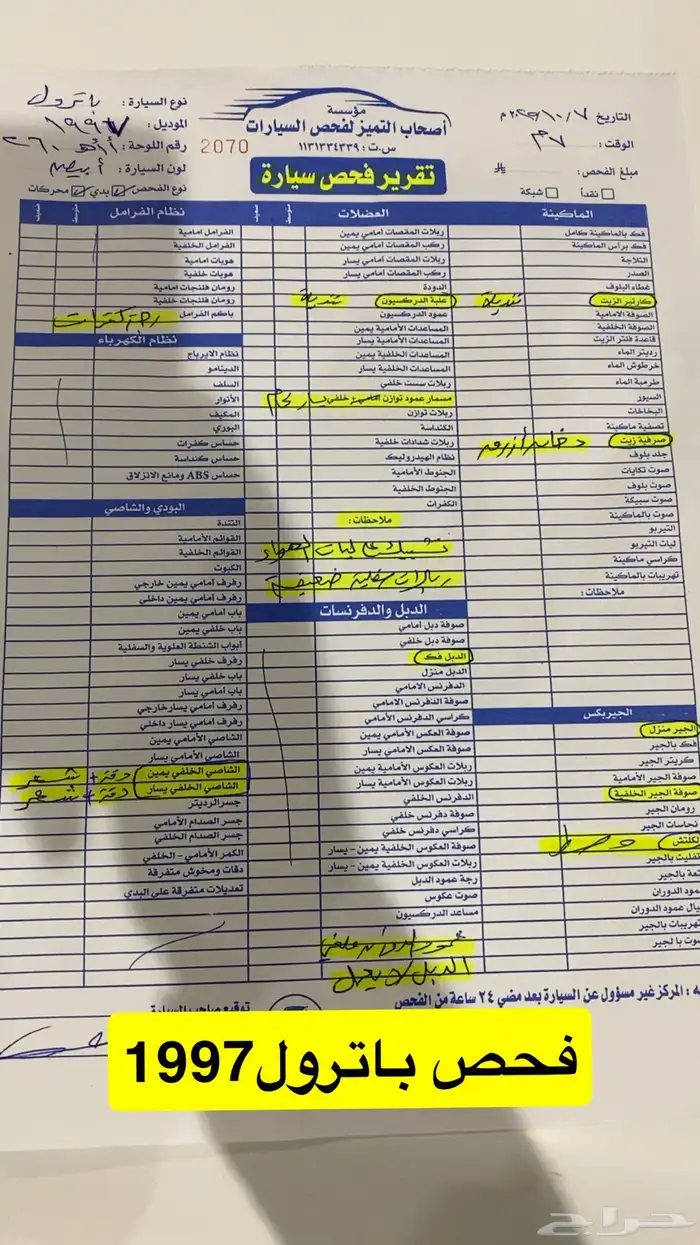 مؤسسة
أصحاب التميز لفحص السيارات
س.ت : ١١٣١٣٣٤٣٣٩
2070
تقرير فحص سيارة
التاريخ
الوقت: ٧م
مبلغ الفحص:
نقداً
شبكة
نوع السيارة : باترول
الموديل : ١٩٩٧
رقم اللوحة :
لون السيارة : أبيض
نوع الفحص
بدي
محركات
الماكينة
فك بالماكينة كامل
فك برأس الماكينة
الثلاجة
الصدر
غطاء البلوف
كارتير الزيت تنديلة
الصوفة الامامية
الصوفة الخلفية
قاعدة فلتر الزيت
رديتر الماء
خرطوش الماء
طرمبة الماء
السيور
البخاخات
تصفية ماكينة
صرفية زيت دخان أزرق
جلد بلوف
صوت تكايات
صوت بلوف
صوت سبيكة
صوت بالماكينة
التيربو
ليات التيربو
كراسي ماكينة
تهريبات بالماكينة
ملاحظات :
الجيربكس
الجير منزل
فك بالجير
كريتر الجير
صوفة الجير الأمامية
صوفة الجير الخلفية
رومان الجير
نحاسات الجير
وسط
تفليت بالجير
العضلات
متوسط
ضعيف
ربلات المقصات امامي يمين
ركب المقصات امامي يمين
ربلات المقصات امامي يسار
ركب المقصات امامي يسار
الدودة
علبة الدركسيون تندية
عمود الدركسيون
المساعدات الأمامية يمين
المساعدات الأمامية يسار
المساعدات الخلفية يمين
المساعدات الخلفية يسار
ربلات سست خلفي
مسمار عمود توازن امامي - خلفي يسار لحام
ربلات توازن
الكنداسة
ربلات شدادات خلفية
نظام الهيدروليك
الجنوط الأمامية
الجنوط الخلفية
الكفرات
ملاحظات :
تشييك على ليات الهواء
ضعيف
الدبل والدفرنسات
صوفة دبل أمامي
صوفة دبل خلفي
الدبل فك
الدبل منزل
الدفرنس الامامي
صوفة الدفرنس الامامي
كراسي الدفرنس الأمامي
صوفة العكس الأمامي يمين
صوفة العكس الامامي يسار
ربلات العكوس الأمامية يمين
ربلات العكوس الأمامية يسار
الدفرنس الخلفي
صوفة دفرنس خلفي
كراسي دفرنس خلفي
صوفة العكوس الخلفية يمين - يسار
ربلات العكوس الخلفية يمين - يسار
رجة عمود الدبل
صوت عكوس
مساعد الدركسيون
الدبل لا يعمل
نظام الفرامل
متوسط
ضعيف
الفرامل امامية
الفرامل الخلفية
هوبات امامية
هوبات خلفية
رومان فلنجات امامية
رومان فلنجات خلفية
باكم الفرامل رجة كفرات
نظام الكهرباء
نظام الايرباج
الدينامو
السلف
الأنوار
المكيف
البوري
حساس كفرات
حساس كنداسة
حساس ABS ومانع الانزلاق
البودي والشاصي
التندة
القوائم الأمامية
القوائم الخلفية
الكبوت
رفرف امامي يمين خارجي
رفرف امامي يمين داخلي
باب امامي يمين
باب خلفي يمين
أبواب الشنطة العلوية والسفلية
رفرف خلفي يسار
باب خلفي يسار
باب أمامي يسار
رفرف امامي يسار خارجي
رفرف امامي يسار داخلي
الشاصي الأمامي يمين
الشاصي الأمامي يسار
الشاصي الخلفي يمين دقة + شعر
الشاصي الخلفي يسار دقة + شعر
جسر الرديتر
جسر الصدام الأمامي
جسر الصدام الخلفي
الكمر الأمامي - الخلفي
دقات ومخوش متفرقة
تعديلات متفرقة على البدي
المركز غير مسؤول عن السيارة بعد مضي ٢٤ ساعة من الفحص
توقيع صاحب السيارة
فحص باترول1997
حراج